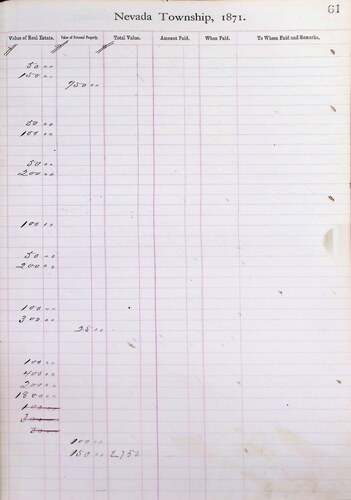 61
Nevada Township, 1871.
Value of Real Estate. Value of Personal Property. Total Value. Amount Paid. When Paid. To Whom Paid and Remarks.
50 00
150 00
750 00
50 00
100 00
50 00
200 00
100 00
50 00
200 00
100 00
300 00
25 00
100 00
400 00
200 00
1800 00
100
100 00
150 00 2,750